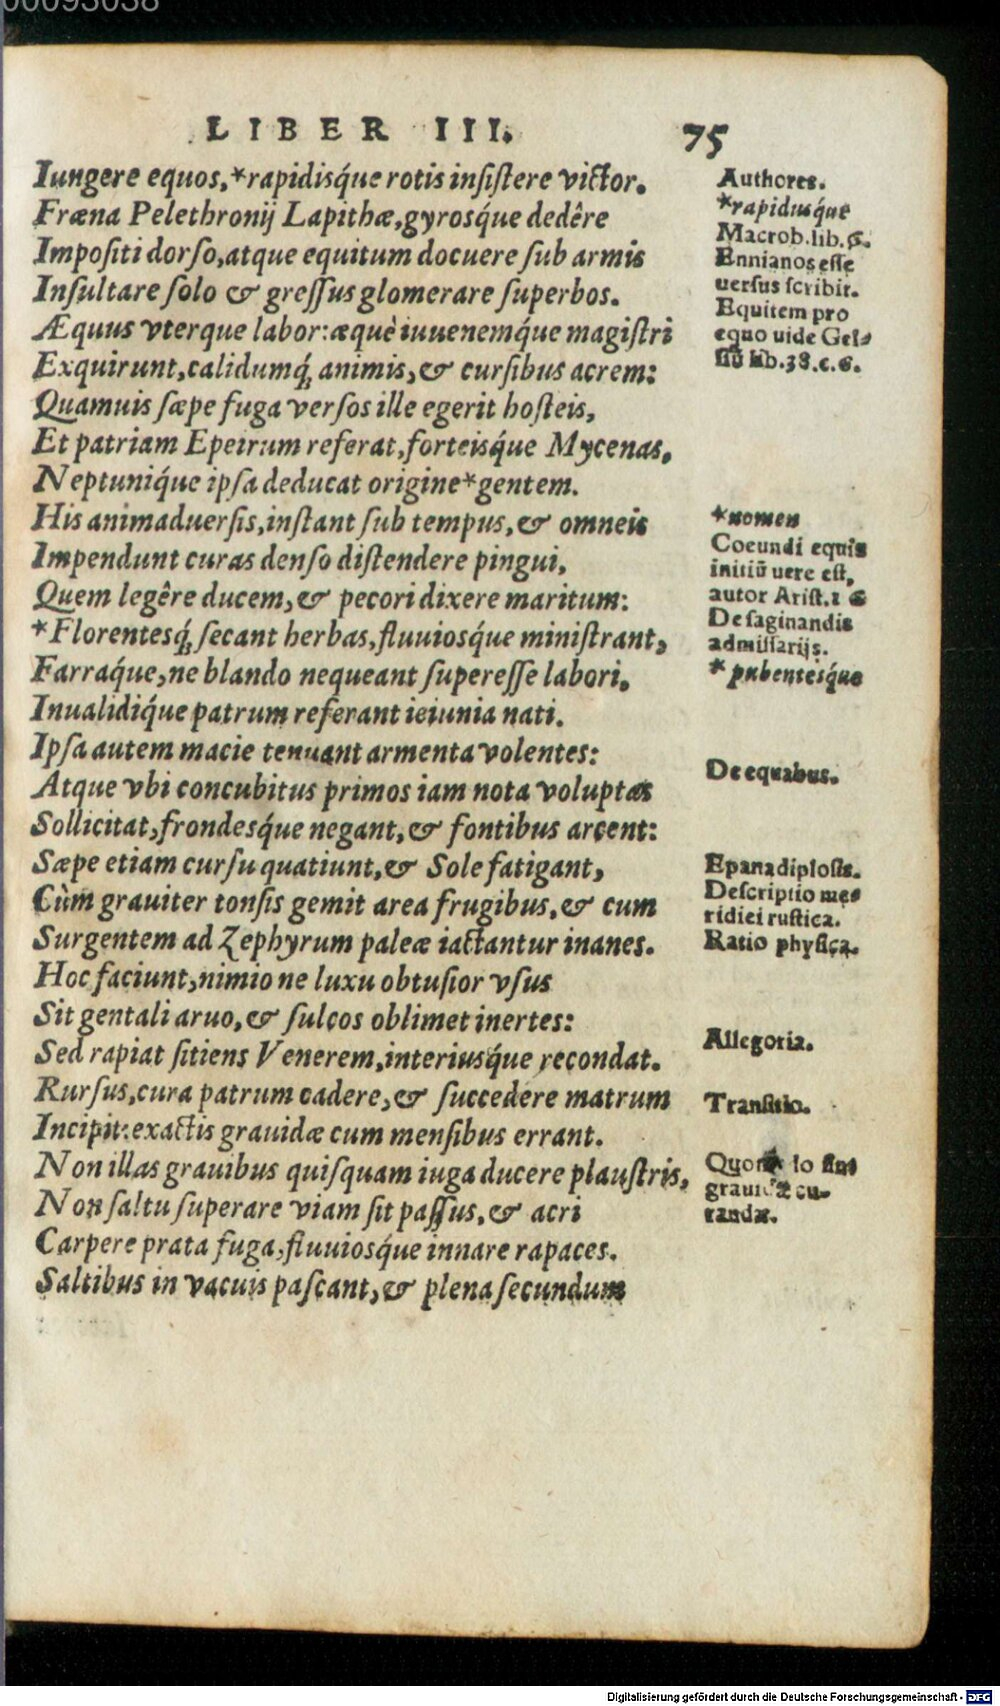 00093038
LIBER III. 75
Iungere equos,*rapidisq́ue rotis insistere victor.
Fræna Pelethronij Lapithæ,gyrosq́ue dedêre
Impositi dorso,atque equitum docuere sub armis
Insultare solo & gressus glomerare superbos.
Æquus vterque labor:æquè iuuenemq́ue magistri
Exquirunt,calidumq́; animis,& cursibus acrem:
Quamuis sæpe fuga versos ille egerit hosteis,
Et patriam Epeirum referat,forteisq́ue Mycenas,
Neptuniq́ue ipsa deducat origine*gentem.
His animaduersis,instant sub tempus,& omneis
Impendunt curas denso distendere pingui,
Quem legêre ducem,& pecori dixere maritum:
*Florentesq́; secant herbas,fluuiosq́ue ministrant,
Farraq́ue,ne blando nequeant superesse labori,
Inualidiq́ue patrum referant ieiunia nati.
Ipsa autem macie tenuant armenta volentes:
Atque vbi concubitus primos iam nota voluptas
Sollicitat,frondesq́ue negant,& fontibus arcent:
Sæpe etiam cursu quatiunt,& Sole fatigant,
Cùm grauiter tonsis gemit area frugibus,& cum
Surgentem ad Zephyrum paleæ iactantur inanes.
Hoc faciunt,nimio ne luxu obtusior vsus
Sit gentali aruo,& sulcos oblimet inertes:
Sed rapiat sitiens Venerem,interiusq́ue recondat.
Rursus,cura patrum cadere,& succedere matrum
Incipit:exactis grauidæ cum mensibus errant.
Non illas grauibus quisquam iuga ducere plaustris,
Non saltu superare viam sit passus,& acri
Carpere prata fuga,fluuiosq́ue innare rapaces.
Saltibus in vacuis pascant,& plena secundum
Authores.
*rapidusq́ue
Macrob.lib.6.
Ennianos esse
uersus scribit.
Equitem pro
equo uide Gel-
liū lib.38.c.6.
*nomen
Coeundi equis
initiū uere est,
autor Arist.1 6
De saginandis
admissarijs.
*pubentesq́ue
De equabus.
Epanadiplosis.
Descriptio me-
ridiei rustica.
Ratio physica.
Allegoria.
Transitio.
Quomodo sint
grauidæ cu-
randæ.
Digitalisierung gefördert durch die Deutsche Forschungsgemeinschaft - DFG